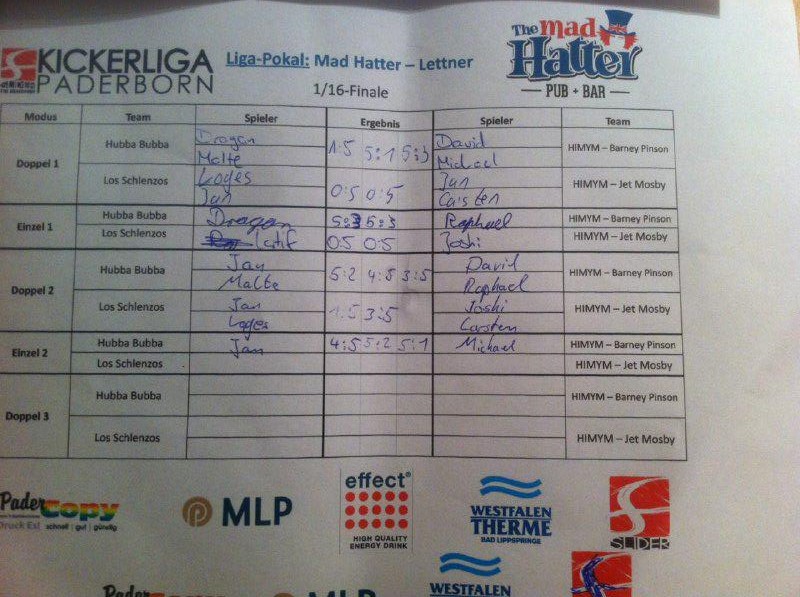 KICKERLIGA
PADERBORN
Liga-Pokal: Mad Hatter – Lettner
1/16-Finale
The mad Hatter
PUB + BAR
Modus Team Spieler Ergebnis Spieler Team
Doppel 1 Hubba Bubba Dragan 1:5 5:1 5:3 David HIMYM – Barney Pinson
Malte Michael
Los Schlenzos Loges 0:5 0:5 Jan HIMYM – Jet Mosby
Jan Carsten
Einzel 1 Hubba Bubba Dragan 5:3 5:3 Raphael HIMYM – Barney Pinson
Los Schlenzos latif 0:5 0:5 Joshi HIMYM – Jet Mosby
Doppel 2 Hubba Bubba Jan 5:2 4:5 3:5 David HIMYM – Barney Pinson
Malte Raphael
Los Schlenzos Jan 1:5 3:5 Joshi HIMYM – Jet Mosby
Loges Carsten
Einzel 2 Hubba Bubba Jan 4:5 5:2 5:1 Michael HIMYM – Barney Pinson
Los Schlenzos HIMYM – Jet Mosby
Doppel 3 Hubba Bubba HIMYM – Barney Pinson
Los Schlenzos HIMYM – Jet Mosby
PaderCopy
Druck Es! schnell | gut | günstig
MLP
effect®
HIGH QUALITY
ENERGY DRINK
WESTFALEN
THERME
BAD LIPPSPRINGE
SLIDER
PaderCopy
MLP
WESTFALEN